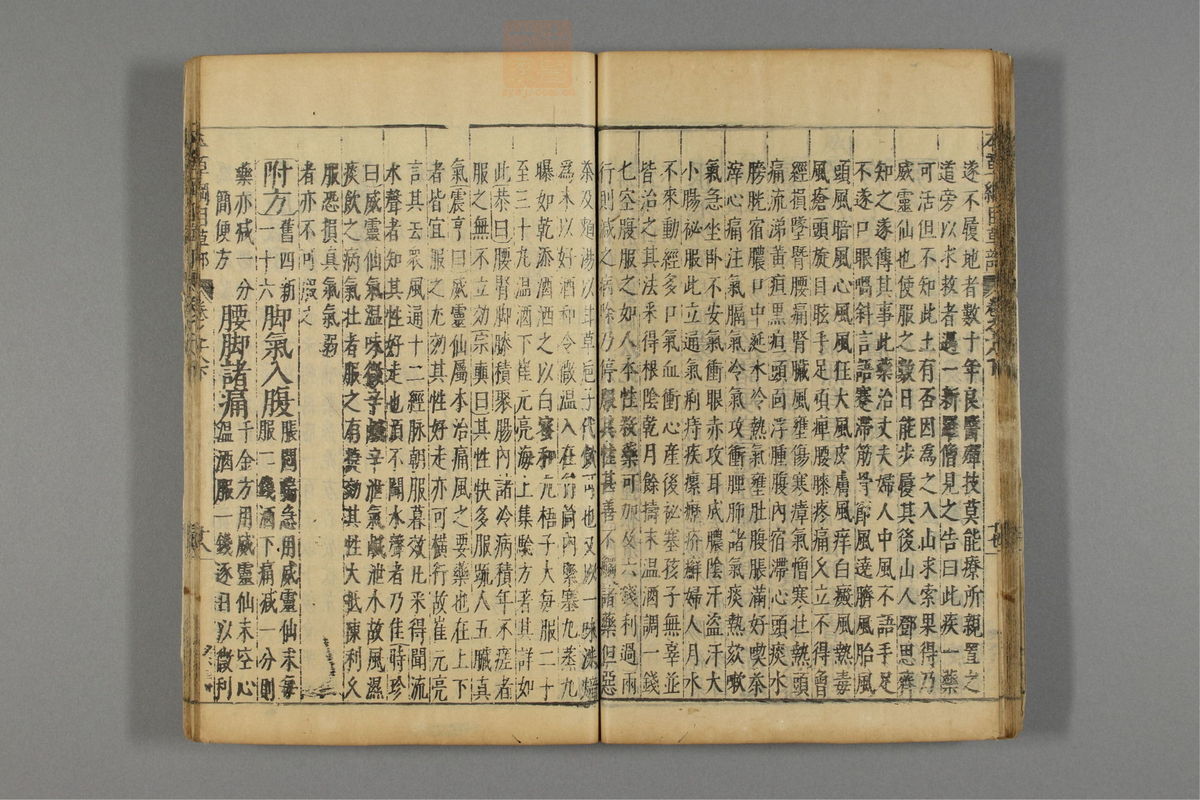 遂不履地者數十年良醫殫技莫能療所親置之
道旁以求救者遇一新羅僧見之告曰此疾一藥
可活但不知此土有否因為之入山求索果得乃
威靈仙也使服之數日能步履其後山人鄧思齊
知之遂傳其事此藥治丈夫婦人中風不語手足
不遂口眼喎斜言語蹇滯筋骨節風遶臍風胎風
頭風暗風心風風狂大風皮膚風痒白癜風熱毒
風瘡頭旋目眩手足頑痺腰膝疼痛久立不得曾
經損墜臂腰痛腎臟風壅傷寒瘴氣憎寒壯熱頭
痛流涕黃疸黑疸頭面浮腫腹內宿滯心頭痰水
膀胱宿膿口中涎水冷熱氣壅肚腹脹滿好喫茶
滓心痛注氣膈氣冷氣攻衝脾肺諸氣痰熱欬嗽
氣急坐卧不安氣衝眼赤攻耳成膿陰汗盗汗大
小腸祕服此立通氣痢痔疾瘰癧疥癬婦人月水
不來動經多日氣血衝心產後祕塞孩子無辜並
皆治之其法采得根陰乾月餘擣末温酒調一錢
七空腹服之如人本性殺藥可加及六錢利過兩
行則減之病除乃停服其性甚善不觸諸藥但惡
茶及麪湯以甘草巵子代飲可也又以一味洗焙
為末以好酒和令微温入在竹筒內緊塞九蒸九
曝如乾添酒洒之以白蜜和丸梧子大每服二十
至三十丸温酒下崔元亮海上集驗方著其詳如
此恭曰腰腎脚膝積聚腸內諸冷病積年不瘥者
服之無不立効宗奭曰其性快多服疏人五臟真
氣震亨曰威靈仙屬木治痛風之要藥也在上下
者皆宜服之尤効其性好走亦可橫行故崔元亮
言其去衆風通十二經脉朝服暮效凡采得聞流
水聲者知其性好走也須不聞水聲者乃佳時珍
曰威靈仙氣温味微辛鹹辛泄氣鹹泄水故風濕
痰飲之病氣壯者服之有捷効其性大抵疎利久
服恐損真氣氣弱
者亦不可服之
附方舊四新一十六脚氣入腹脹悶喘急用威靈仙末每服二錢酒下痛减一分則
藥亦减一分簡便方腰脚諸痛千金方用威靈仙末空心温酒服一錢逐日以微利